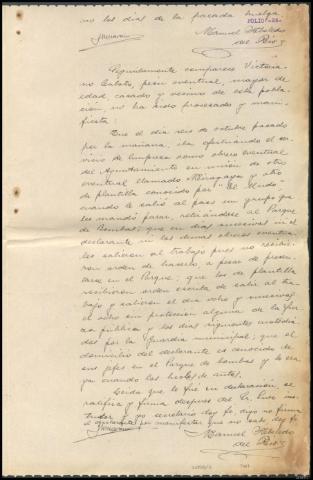 no los días de la pasada huelga.
FOLIO -25-
Manuel Robledo
del Río
Seguidamente comparece Victoria-
no Cabato, peon eventual, mayor de
edad, casado y vecino de esta pobla-
cion no ha sido procesado y mani-
fiesta:
Que el dia seis de octubre pasado
por la mañana, iba efectuando el ser-
vicio de limpieza como obrero eventual
del Ayuntamiento en unión de otro
eventual llamado y otro
de plantilla conocido por "El Mudo",
cuando le salió al paso un grupo que
les mandó parar, retirándose al Parque
de Bombas; que en dias sucesivos ni el
declarante ni los demas obreros eventua-
les salieron al trabajo pues no recibie-
ron orden de hacerlo, a pesar de presen-
tarse en el Parque; que los de plantilla
recibieron orden escrita de salir al tra-
bajo y salieron el dia ocho y nueve,
el ocho sin proteccion alguna de la fuer-
za pública y los dias siguientes custodia-
dos por la Guardia municipal; que el
domicilio del declarante es conocido de
sus jefes en el Parque de bombas y le era
ya cuando los hechos de autos.
Leida que le fué su declaración se
ratifica y firma despues del Sr. Juez ins-
tructor y yo secretario doy fe, digo no firma
el declarante por manifestar que no sabe doy fe
Manuel Robledo
del Río